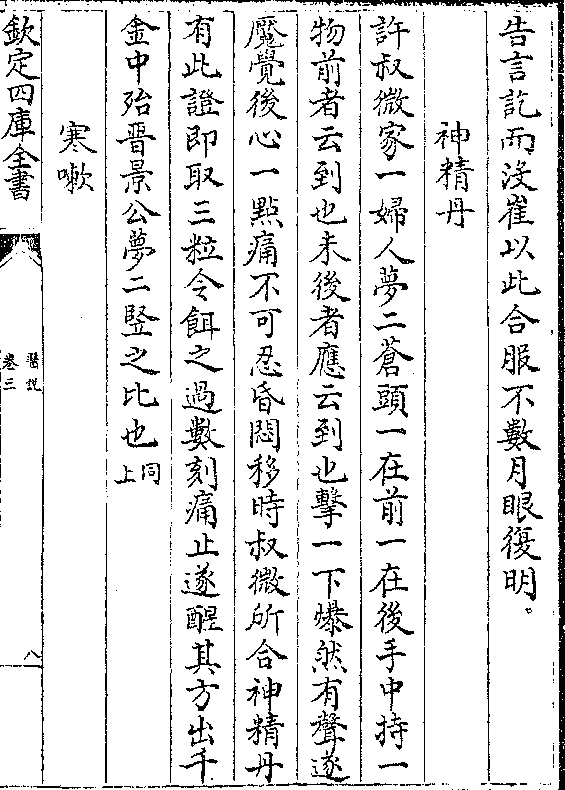 告言訖而沒崔以此合服不數月眼復明。
神精丹
許叔微家一婦人夢二蒼頭一在前一在後手中持一
物前者云到也未後者應云到也擊一下爆然有聲遂
魘覺後心一點痛不可忍昏悶移時叔微所合神精丹
有此證即取三粒令餌之過數刻痛止遂醒其方出千
金中殆晋景公夢二竪之比也同上
寒嗽
欽定四庫全書
醫説
卷三
八